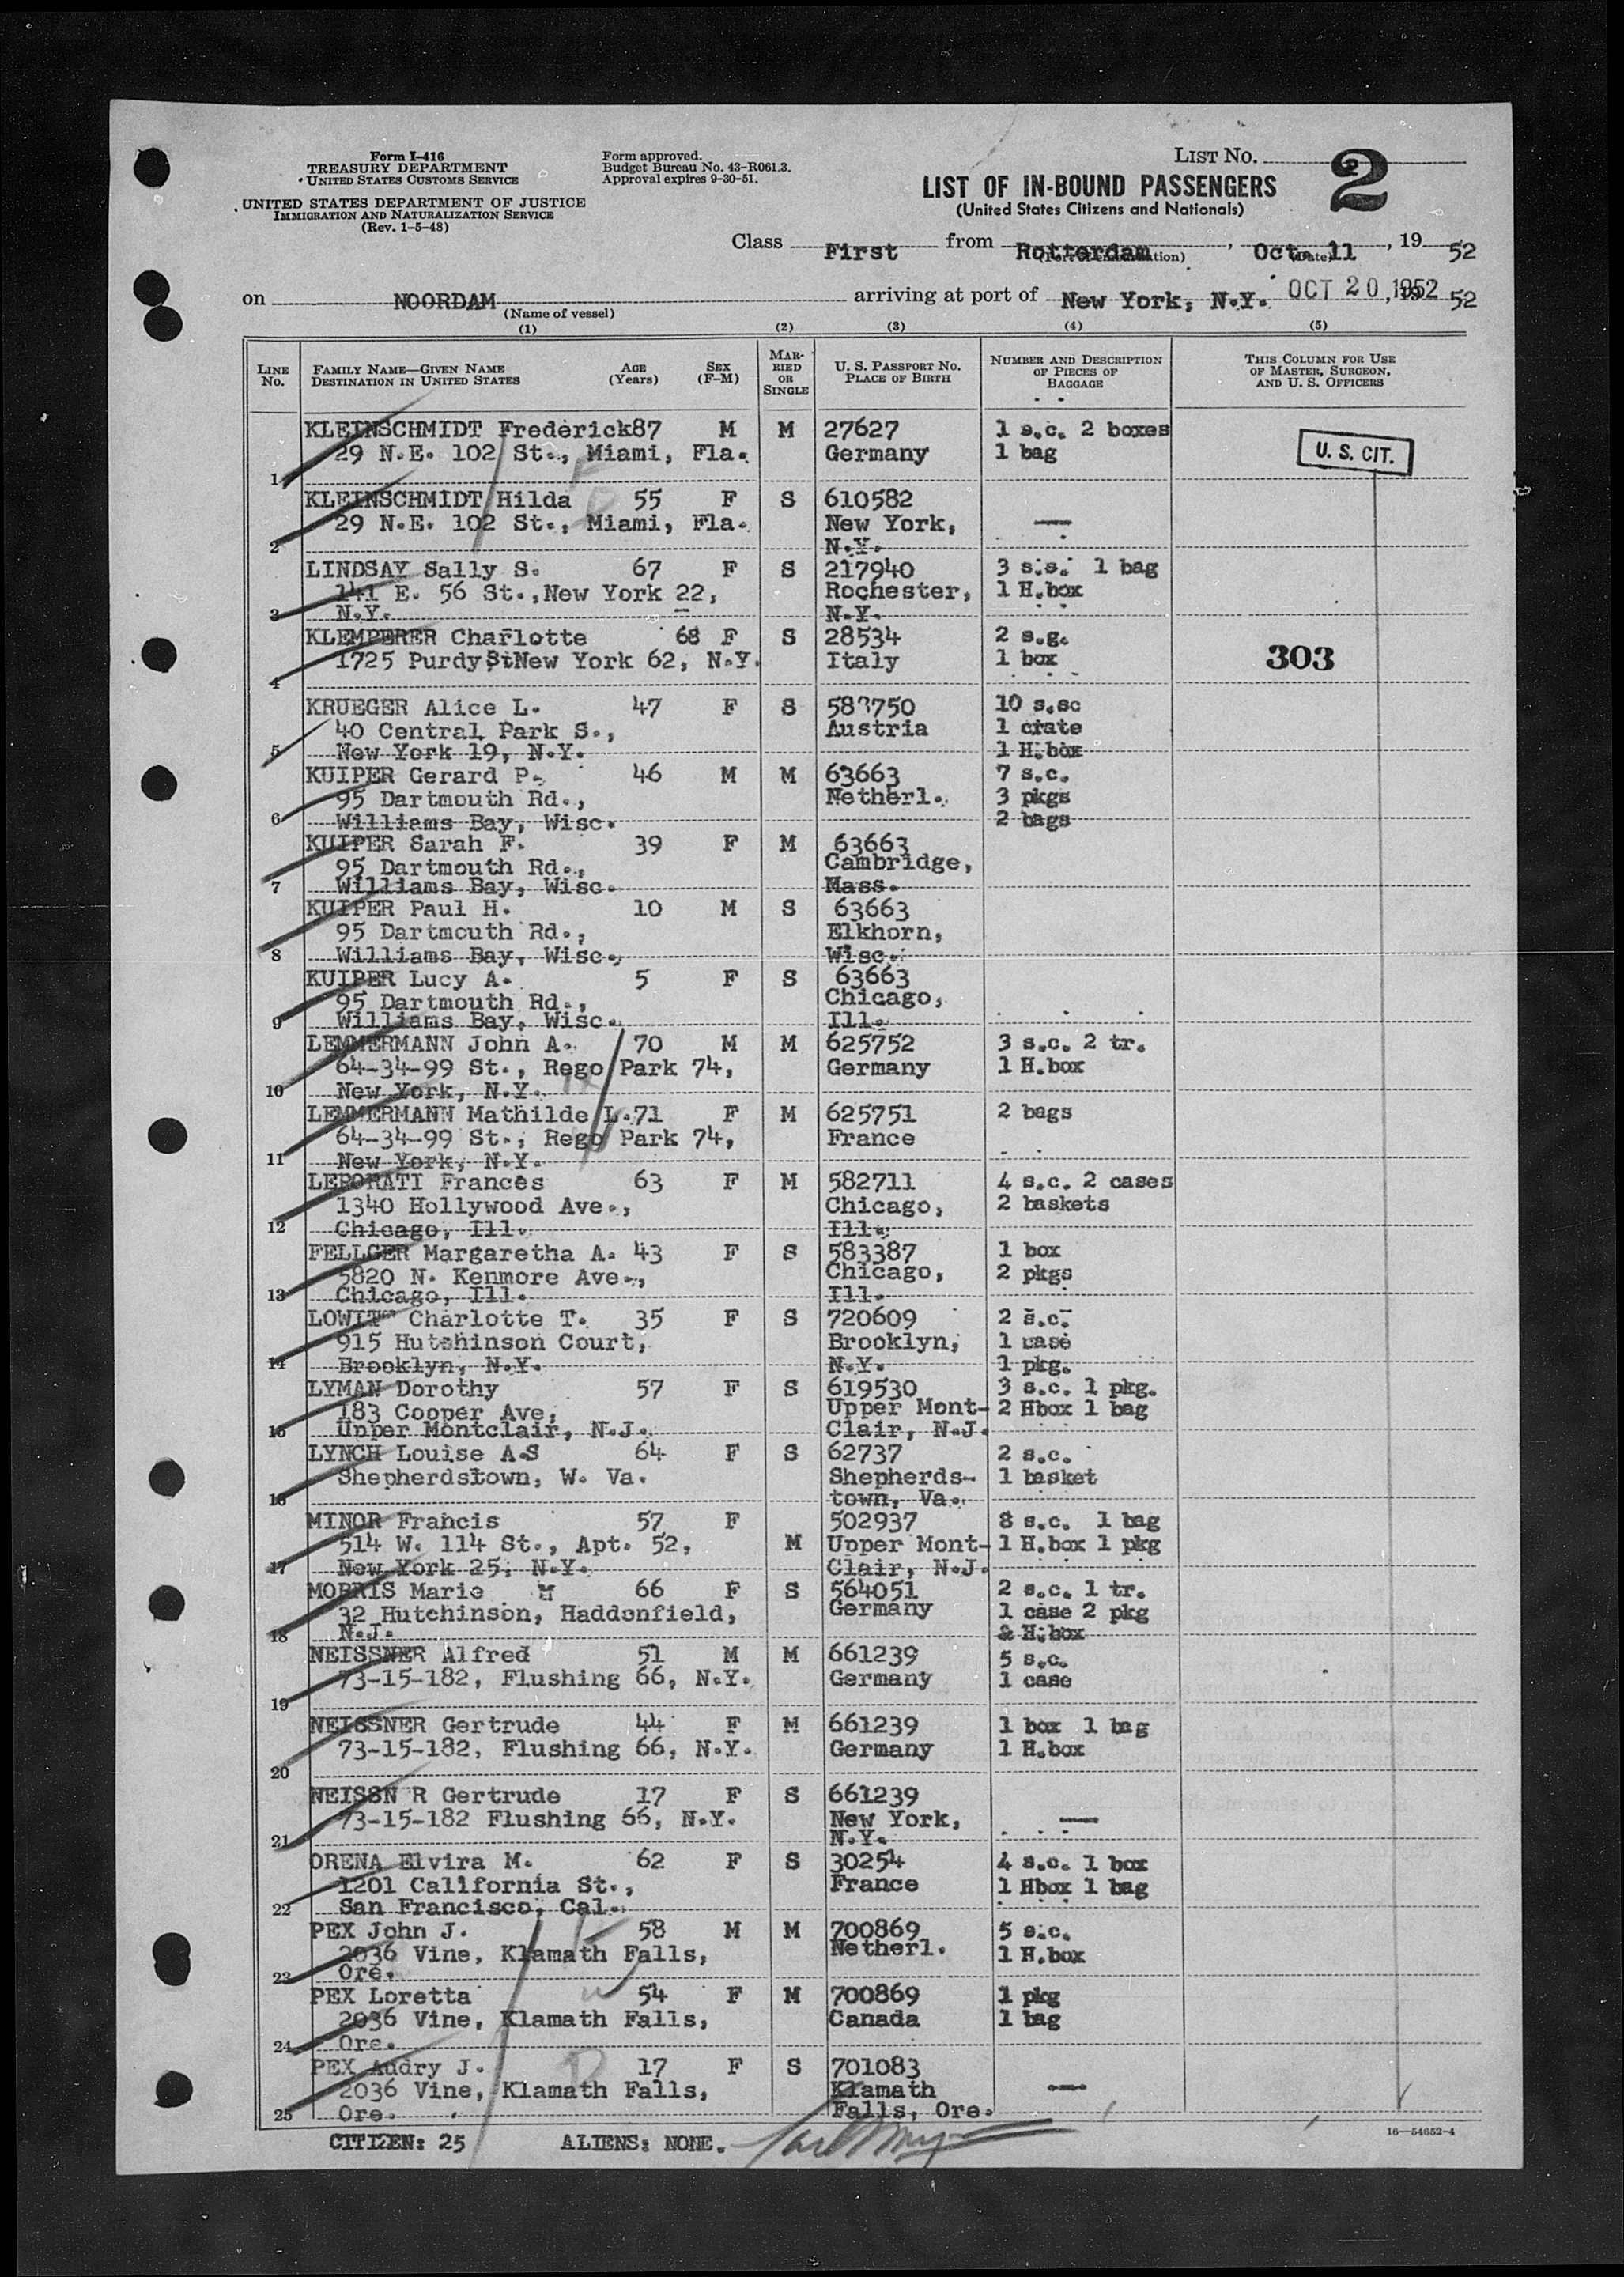 Form I-416
TREASURY DEPARTMENT
UNITED STATES CUSTOMS SERVICE
UNITED STATES DEPARTMENT OF JUSTICE
IMMIGRATION AND NATURALIZATION SERVICE
(Rev. 1-5-48)
Form approved.
Budget Bureau No. 43-R061.3.
Approval expires 9-30-51.
LIST NO. 2
LIST OF IN-BOUND PASSENGERS
(United States Citizens and Nationals)
Class First from Rotterdam, Oct. 11, 19 52
(Date)
on NOORDAM arriving at port of New York, N.Y. OCT 20 1952 52
(Name of vessel)
(1) (2) (3) (4) (5)
LINE NO. FAMILY NAME—GIVEN NAME DESTINATION IN UNITED STATES AGE (Years) SEX (F-M) MARRIED OR SINGLE U. S. PASSPORT NO. PLACE OF BIRTH NUMBER AND DESCRIPTION OF PIECES OF BAGGAGE THIS COLUMN FOR USE OF MASTER, SURGEON, AND U. S. OFFICERS
KLEINSCHMIDT Frederick 87 M M 27627 1 s.c. 2 boxes
29 N.E. 102 St., Miami, Fla. Germany 1 bag U. S. CIT.
1
KLEINSCHMIDT Hilda 55 F S 610582
29 N.E. 102 St., Miami, Fla. New York, —
2 N.Y.
LINDSAY Sally S. 67 F S 217940 3 s.s. 1 bag
141 E. 56 St., New York 22, Rochester, 1 H.box
3 N.Y. N.Y.
KLEMPERER Charlotte 68 F S 28534 2 s.g.
1725 Purdy St New York 62, N.Y. Italy 1 box 303
4
KRUEGER Alice L. 47 F S 583750 10 s.sc
40 Central Park S., Austria 1 crate
5 New York 19, N.Y. 1 H.box
KUIPER Gerard P. 46 M M 63663 7 s.c.
95 Dartmouth Rd., Netherl. 3 pkgs
6 Williams Bay, Wisc. 2 bags
KUIPER Sarah F. 39 F M 63663
95 Dartmouth Rd., Cambridge,
7 Williams Bay, Wisc. Mass.
KUIPER Paul H. 10 M S 63663
95 Dartmouth Rd., Elkhorn,
8 Williams Bay, Wisc. Wisc.
KUIPER Lucy A. 5 F S 63663
95 Dartmouth Rd., Chicago,
9 Williams Bay, Wisc. Ill.
LEMMERMANN John A. 70 M M 625752 3 s.c. 2 tr.
64-34-99 St., Rego Park 74, Germany 1 H.box
10 New York, N.Y.
LEMMERMANN Mathilde L. 71 F M 625751 2 bags
64-34-99 St., Rego Park 74, France
11 New York, N.Y.
LEPORATI Frances 63 F M 582711 4 s.c. 2 cases
1340 Hollywood Ave., Chicago, 2 baskets
12 Chicago, Ill. Ill.
FELLGER Margaretha A. 43 F S 583387 1 box
5820 N. Kenmore Ave., Chicago, 2 pkgs
13 Chicago, Ill. Ill.
LOWIT Charlotte T. 35 F S 720609 2 s.c.
915 Hutchinson Court, Brooklyn, 1 case
14 Brooklyn, N.Y. N.Y. 1 pkg.
LYMAN Dorothy 57 F S 619530 3 s.c. 1 pkg.
183 Cooper Ave, Upper Mont- 2 Hbox 1 bag
15 Upper Montclair, N.J. Clair, N.J.
LYNCH Louise A.S 64 F S 62737 2 s.c.
Shepherdstown, W. Va. Shepherds- 1 basket
16 town, Va.
MINOR Francis 57 F 502937 8 s.c. 1 bag
514 W. 114 St., Apt. 52, M Upper Mont- 1 H.box 1 pkg
17 New York 25, N.Y. Clair, N.J.
MORRIS Marie M 66 F S 564051 2 s.c. 1 tr.
32 Hutchinson, Haddonfield, Germany 1 case 2 pkg
18 N.J. & H.box
NEISSNER Alfred 51 M M 661239 5 s.c.
73-15-182, Flushing 66, N.Y. Germany 1 case
19
NEISSNER Gertrude 44 F M 661239 1 box 1 bag
73-15-182, Flushing 66, N.Y. Germany 1 H.box
20
NEISSN R Gertrude 17 F S 661239
73-15-182 Flushing 66, N.Y. New York, —
21 N.Y.
ORENA Elvira M. 62 F S 30254 4 s.c. 1 box
1201 California St., France 1 Hbox 1 bag
22 San Francisco, Cal.
PEX John J. 58 M M 700869 5 s.c.
2036 Vine, Klamath Falls, Netherl. 1 H.box
23 Ore.
PEX Loretta 54 F M 700869 1 pkg
2036 Vine, Klamath Falls, Canada 1 bag
24 Ore.
PEX Audry J. 17 F S 701083
2036 Vine, Klamath Falls, Klamath —
25 Ore. Falls, Ore.
CITIZEN: 25 ALIENS: NONE.
16—54652-4